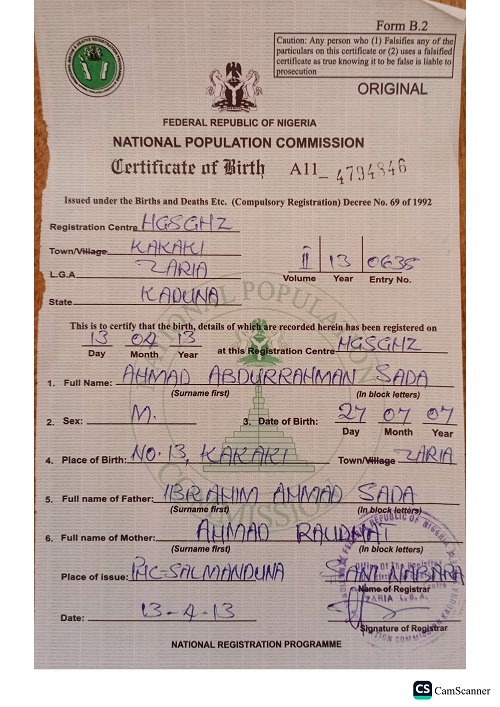 Form B.2
Caution: Any person who (1) Falsifies any of the
particulars on this certificate or (2) uses a falsified
certificate as true knowing it to be false is liable to
prosecution
ORIGINAL
FEDERAL REPUBLIC OF NIGERIA
NATIONAL POPULATION COMMISSION
Certificate of Birth A11_ 4794846
Issued under the Births and Deaths Etc. (Compulsory Registration) Decree No. 69 of 1992
Registration Centre HGSGHZ
Town/Village KAKAKI
L.G.A ZARIA
State KADUNA
II 13 0635
Volume Year Entry No.
This is to certify that the birth, details of which are recorded herein has been registered on
13 04 13 at this Registration Centre HGSGHZ
Day Month Year
1. Full Name: AHMAD ABDURRAHMAN SADA
(Surname first) (In block letters)
2. Sex: M. 3. Date of Birth: 27 07 07
Day Month Year
4. Place of Birth: NO. 13, KAKAKI Town/Village ZARIA
5. Full name of Father: IBRAHIM AHMAD SADA
(Surname first) (In block letters)
6. Full name of Mother: AHMAD RAUDHAT
(Surname first) (In block letters)
Place of issue: SANI
Name of Registrar
ZARIA L.G.A.
Date: 13-4-13
Signature of Registrar
NATIONAL REGISTRATION PROGRAMME
CS CamScanner